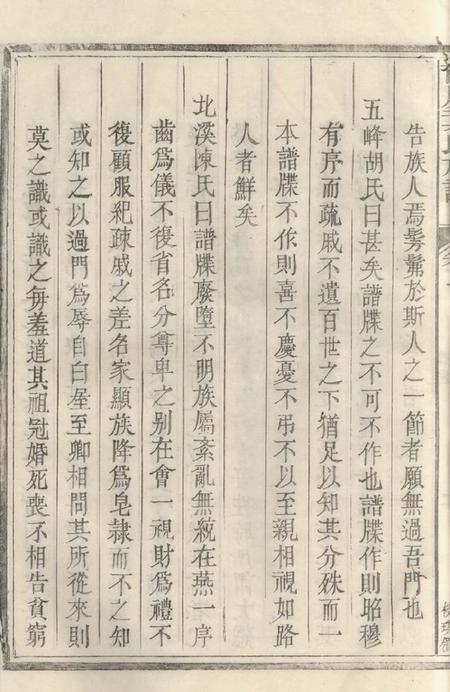 告族人焉髣髴於斯人之一節者願無過吾門也
五峰胡氏曰甚矣譜牒之不可不作也譜牒作則昭穆
有序而疏戚不遺百世之下猶足以知其分殊而一
本譜牒不作則喜不慶憂不弔不以至親相視如路
人者鮮矣
北溪陳氏曰譜牒廢墮不明族屬紊亂無統在燕一序
齒爲儀不復省名分尊卑之别在會一視財爲禮不
復顧服紀疎戚之差名家顯族降爲皂隸而不之知
或知之以過門爲辱自白屋至卿相問其所從來則
莫之識或識之每羞道其祖冠婚死喪不相告貧窮